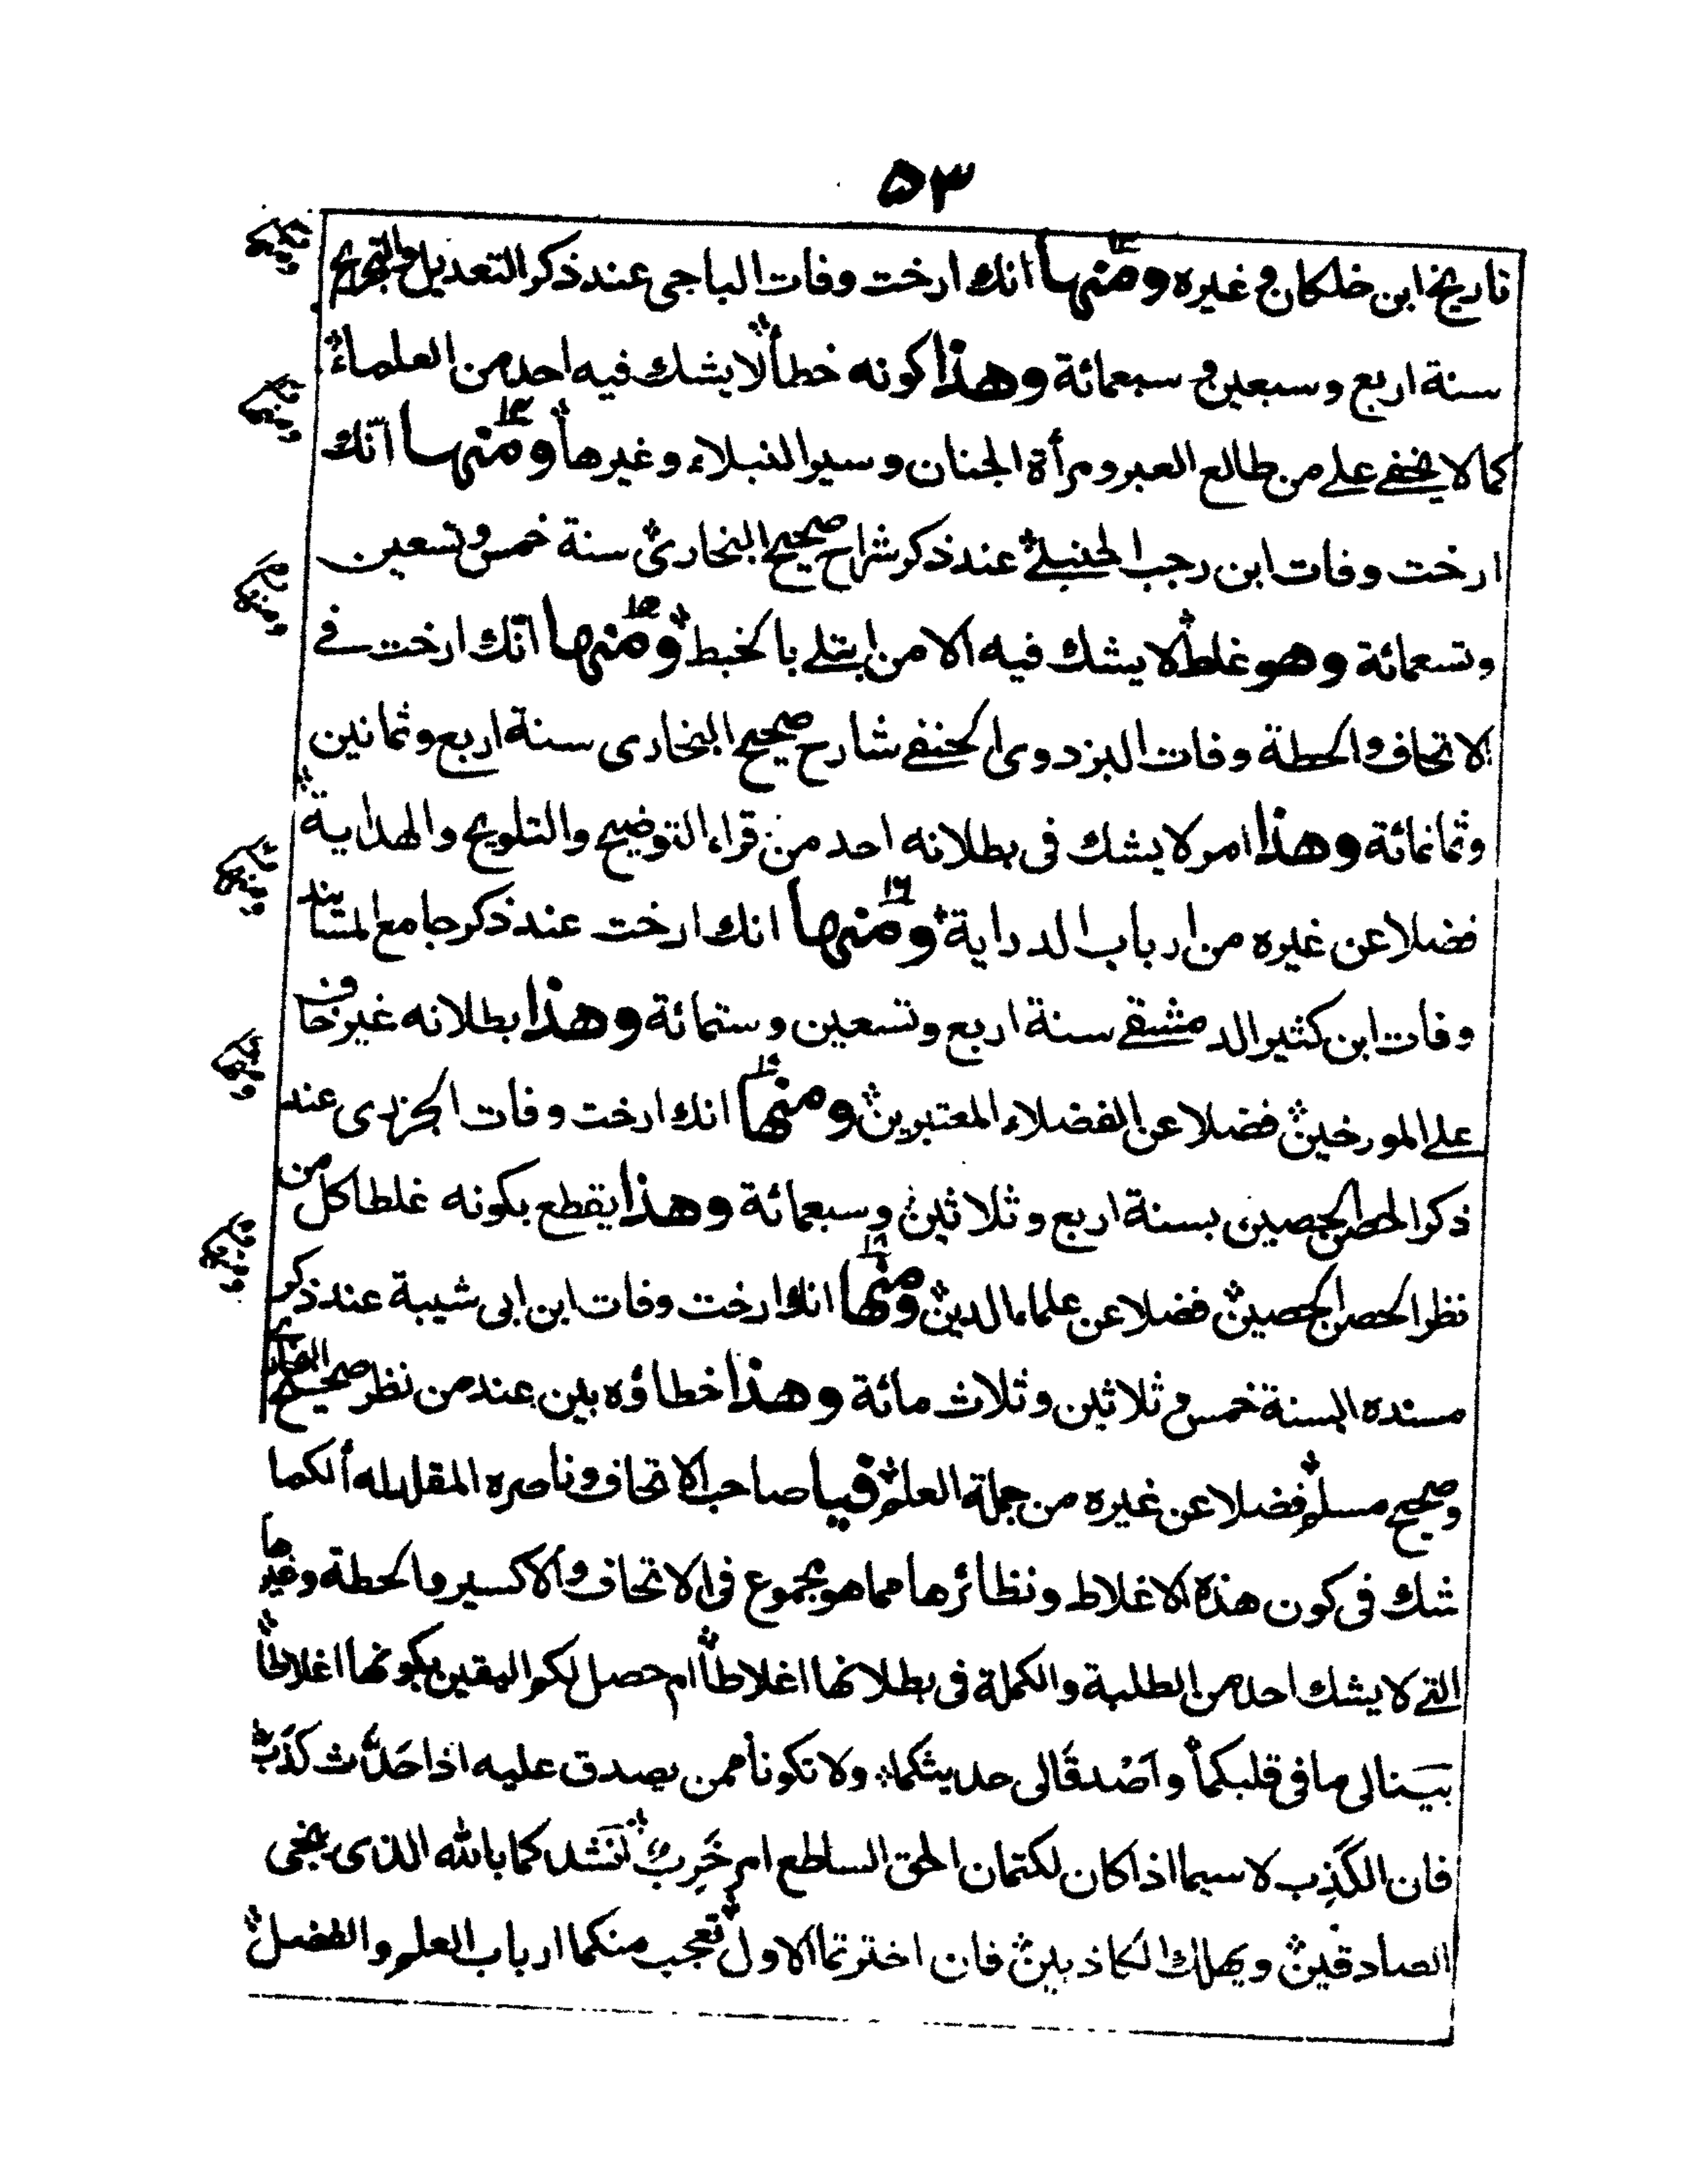 ۵۳
تاريخ ابن خلكان وغيره ومنها ۱۳ انك ارخت وفات الباجى عند ذكر التعديل والتجريح
سنة اربع وسبعين وسبعمائة وهذا كونه خطأ لا يشك فيه احد من العلماء
كما لا يخفے علے من طالع العبر ومرأة الجنان وسير النبلاء وغيرها ومنها ۱۴ انّك
ارخت وفات ابن رجب الحنبلے عند ذكر شراح صحيح البخارى سنة خمس وتسعين
وتسعمائة وهو غلط لا يشك فيه الا من ابتلے بالخبط ومنها ۱۵ انّك ارخت فے
الاتحاف والحطة وفات البزدوى الحنفے شارح صحيح البخارى سنة اربع وثمانين
وثمانمائة وهذا امر لا يشك فى بطلانه احد من قراء التوضيح والتلويح والهداية
فضلا عن غيره من ارباب الدراية ومنها ۱۶ انك ارخت عند ذكر جامع المسانيد
وفات ابن كثير الدمشقے سنة اربع وتسعين وستمائة وهذا بطلانه غير خاف
علے المورخين فضلا عن الفضلاء المعتبرين ومنها ۱۷ انك ارخت وفات الجزرى عند
ذكر الحصن الحصين بسنة اربع وثلاثين وسبعمائة وهذا يقطع بكونه غلطا كل من
نظر الحصن الحصين فضلا عن علماء الدين ومنها ۱۸ انك ارخت وفات ابن ابى شيبة عند ذكر
مسنده السنة خمس وثلاثين وثلاث مائة وهذا خطاؤه بين عند من نظر صحيح البخارى
وصحيح مسلم فضلا عن غيره من جملة العلم فيا صاحب الاتحاف وناصره المقلد له ألكما
شك فى كون هذه الاغلاط ونظائرها مما هو مجموع فى الاتحاف والاكسير والحطة وغيرها
التے لا يشك احد من الطلبة والكملة فى بطلانها اغلاطاً ام حصل لكم اليقين بكونها اغلاطاً
بَيّنا لى ما فى قلبكما واَصْدقَا لى حديثكما ولا تكونا ممن يصدق عليه اذا حَدّث كَذَب
فان الكَذِب لا سيما اذا كان لكتمان الحق الساطع امر خَرِب اَنشدكما بالله الذى ينجى
الصادقين ويهلك الكاذبين فان اخترتما الاول تعجب منكما ارباب العلم والفضل